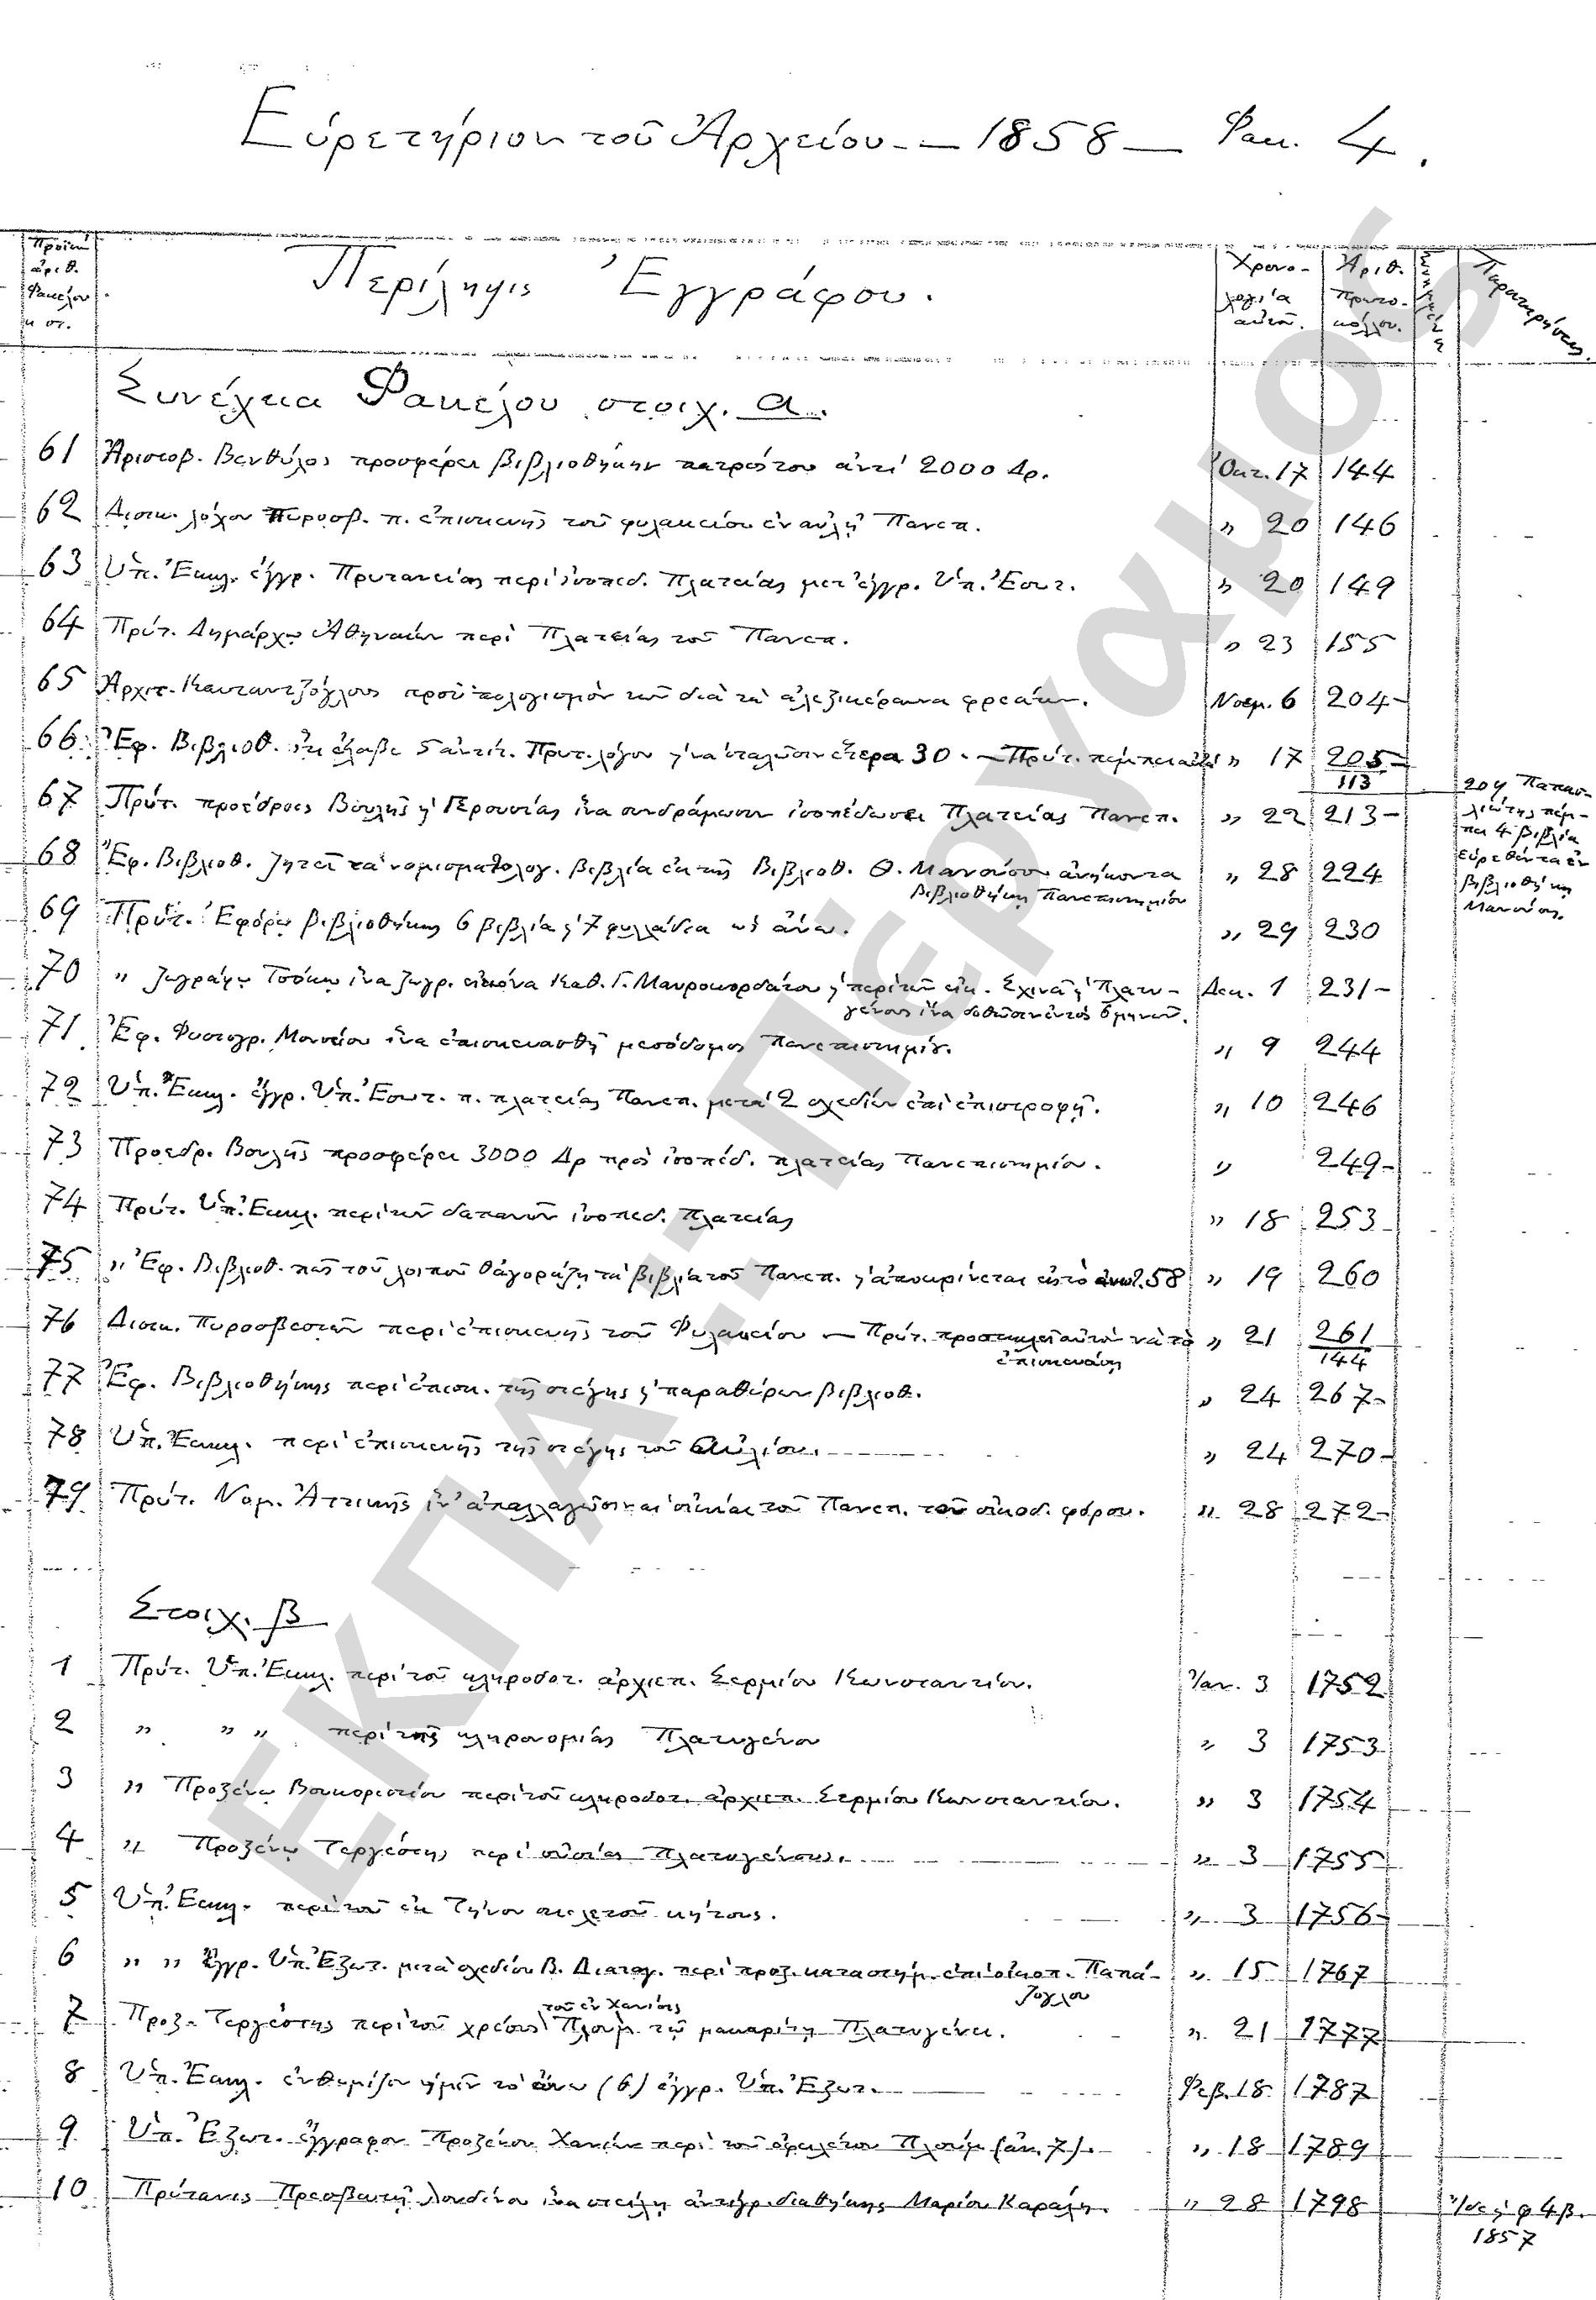 Εὑρετήριον τοῦ Ἀρχείου - 1858 - Φακ. 4.
Χρονολογία αὐτοῦ.
Ἀριθ. Πρωτοκόλλου.
Παρατηρήσεις.
Περίληψις Ἐγγράφου.
Συνέχεια Φακέλου στοιχ. α.
61 Ἀριστοβ. Βενθύλος προσφέρει βιβλιοθήκην πατρός του ἀντὶ 2000 Δρ. Ὀκτ. 17 144
62 Διοικ. λόχου Πυροσβ. π. ἐπισκευῆς τοῦ φυλακείου ἐν αὐλῇ Πανεπ. " 20 146
63 Ὑπ. Ἐκκλ. ἔγγρ. Πρυτανείας περὶ ἰσοπεδ. Πλατείας μετ' ἐγγρ. Ὑπ. Ἐσωτ. " 20 149
64 Πρύτ. Δημάρχῳ Ἀθηναίων περὶ Πλατείας τοῦ Πανεπ. " 23 155
65 Ἀρχιτ. Καυταντζόγλους προϋπολογισμὸν τῶν διὰ τὰ ἀλεξικέραυνα φρεάτων. Νοεμ. 6 204-
66 Ἐφ. Βιβλιοθ. ὅτι ἔλαβε 5 ἀντίτ. Πρυτ. λόγου ἵνα σταλῶσιν ἕτερα 30. - Πρύτ. πέμπει αὐτά " 17 205-
113
67 Πρύτ. προέδροις Βουλῆς ϗ Γερουσίας ἵνα συνδράμωσιν ἰσοπέδωσιν Πλατείας Πανεπ. " 22 213-
68 Ἐφ. Βιβλιοθ. ζητεῖ τὰ νομισματολογ. βιβλία ἐκ τῆς Βιβλιοθ. Θ. Μανούσου ἀνήκοντα " 28 224
βιβλιοθήκῃ Πανεπιστημίου
209 Παπασ-
λιώτης πέμ-
πει 4 βιβλία
εὑρεθέντα ἐν
βιβλιοθήκῃ
Μανούσου.
69 Πρύτ. Ἐφόρῳ βιβλιοθήκης 6 βιβλία ϗ 7 φυλλάδια ὡς ἄνω. " 29 230
70 " ζωγράφῳ Τσόκῳ ἵνα ζωγρ. εἰκόνα Καθ. Γ. Μαυροκορδάτου ϗ περὶ τῶν εἰκ. Σχινᾶ ϗ Πλατυ- Δεκ. 1 231-
γένους ἵνα δοθῶσιν ἐντὸς 6 μηνῶν.
71 Ἐφ. Φυσιογρ. Μουσείου ἵνα ἐπισκευασθῇ μεσόδομος Πανεπιστημίου. " 9 244
72 Ὑπ. Ἐκκλ. ἔγγρ. Ὑπ. Ἐσωτ. π. πλατείας Πανεπ. μετὰ 2 σχεδίων ἐπὶ ἐπιστροφῇ. " 10 246
73 Προεδρ. Βουλῆς προσφέρει 3000 Δρ πρὸς ἰσοπέδ. πλατείας Πανεπιστημίου. " 249-
74 Πρύτ. Ὑπ. Ἐκκλ. περὶ τῶν δαπανῶν ἰσοπεδ. Πλατείας " 18 253-
75 " Ἐφ. Βιβλιοθ. πῶς τοῦ λοιποῦ θ' ἀγοράζῃ τὰ βιβλία τοῦ Πανεπ. ϗ ἀποκρίνεται εἰς τὸ ἀνωτ. 58 " 19 260
76 Διοικ. Πυροσβεστῶν περὶ ἐπισκευῆς τοῦ Φυλακείου - Πρύτ. προσκαλεῖ αὐτὸν νὰ τὸ " 21 261
ἐπισκευάσῃ 144
77 Ἐφ. Βιβλιοθήκης περὶ ἐπισκ. τῆς στέγης ϗ παραθύρων βιβλιοθ. " 24 267-
78 Ὑπ. Ἐκκλ. περὶ ἐπισκευῆς τῆς στέγης τοῦ " 24 270-
79 Πρύτ. Νομ. Ἀττικῆς ἵν' ἀπαλλαγῶσιν αἱ οἰκίαι τοῦ Πανεπ. τοῦ οἰκοδ. φόρου. " 28 272-
Στοιχ. β
1 Πρύτ. Ὑπ. Ἐκκλ. περὶ τοῦ κληροδοτ. ἀρχιεπ. Σερμίου Κωνσταντίου. Ἰαν. 3 1752
2 " " " περὶ τῆς κληρονομίας Πλατυγένου " 3 1753
3 " Προξένῳ Βουκουρεστίου περὶ τοῦ κληροδοτ. ἀρχιεπ. Σερμίου Κωνσταντίου. " 3 1754
4 " Προξένῳ Τεργέστης περὶ οὐσίας Πλατυγένους. " 3 1755
5 Ὑπ. Ἐκκλ. περὶ τοῦ ἐκ Τήνου σκελετοῦ κήτους. " 3 1756-
6 " " Ἔγγρ. Ὑπ. Ἐξωτ. μετὰ σχεδίου Β. Διαταγ. περὶ προξ. καταστήμ. ἐπὶ οἰκοπ. Παπά- " 15 1767
ζογλου
7 Προξ. Τεργέστης περὶ τοῦ χρέους τοῦ ἐν Χανίοις Πλουμ. τῷ μακαρίτῃ Πλατυγένει. " 21 1777
8 Ὑπ. Ἐκκλ. ἐνθυμίζον ἡμῖν τὸ ἄνω (6) ἔγγρ. Ὑπ. Ἐξωτ. Φεβ. 18 1787
9 Ὑπ. Ἐξωτ. ἔγγραφον Προξένου Χανίων περὶ τοῦ ὀφειλέτου Πλουμ (ἄν. 7). " 18 1789
10 Πρύτανις Πρεσβευτῇ Λονδίνου ἵνα στείλῃ ἀντίγρ. διαθήκης Μαρίου Καραλῆ. " 28 1798
Ἴδε ϗ φ 4β.
1857
ΕΚΠΑ - ΠΕΡΓΑΜΟΣ